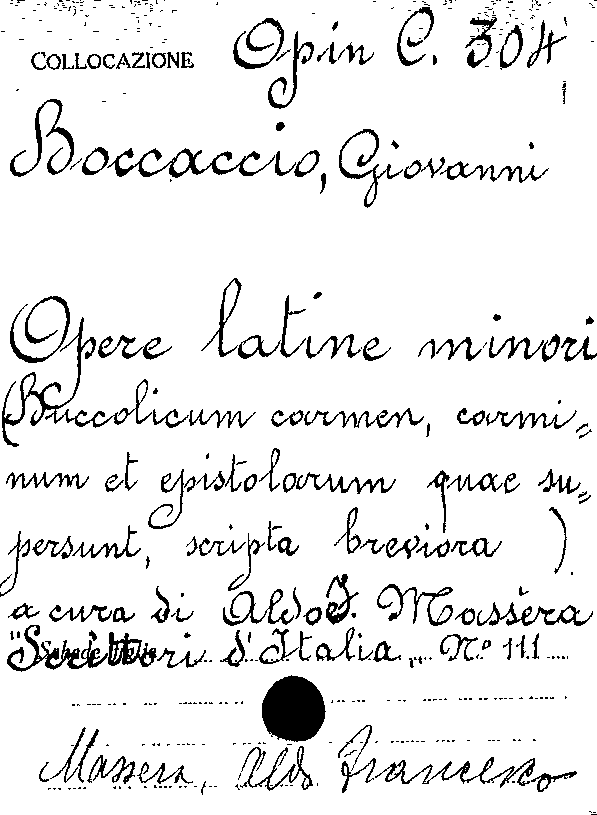 COLLOCAZIONE Opin C. 304
Boccaccio, Giovanni
Opere latine minori
(Buccolicum carmen, carmi=
num et epistolarum quae su=
persunt, scripta breviora )
a cura di Aldo F. Massèra
"Scrittori d'Italia„ Nº 111
Massera, Aldo Francesco